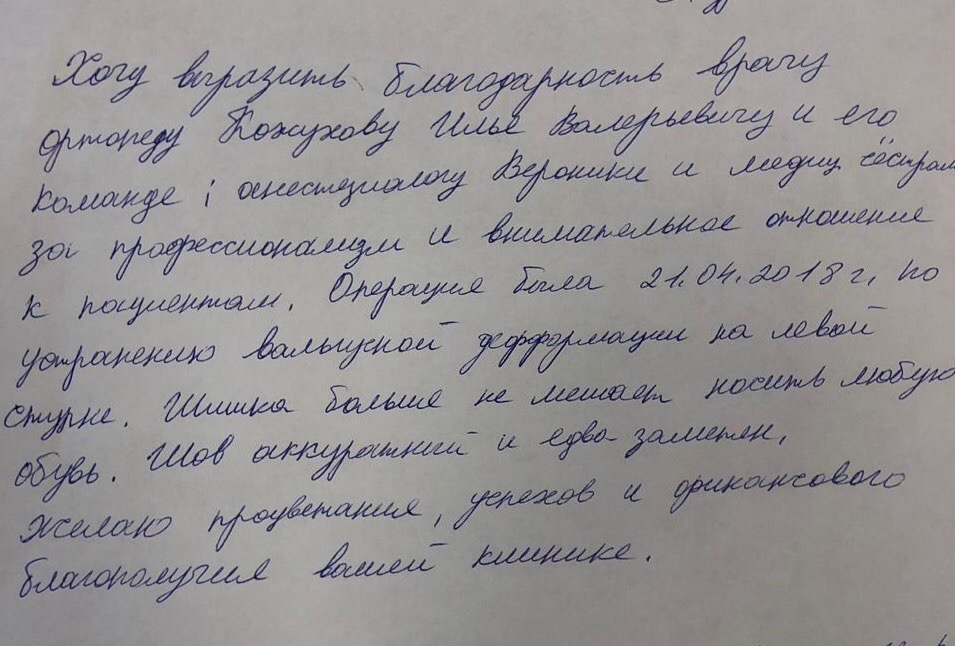 Хочу выразить благодарность врачу
ортопеду Кожухову Илье Валерьевичу и его
команде; анестезиологу Вероники и медиц. сёстрам
за профессионализм и внимательное отношение
к пациентам. Операция была 21.04.2018 г. по
устранению вальгусной дефформации на левой
ступне. Шишка больше не мешает носить любую
обувь. Шов аккуратный и едва заметен.
Желаю процветания, успехов и финансового
благополучия вашей клинике.